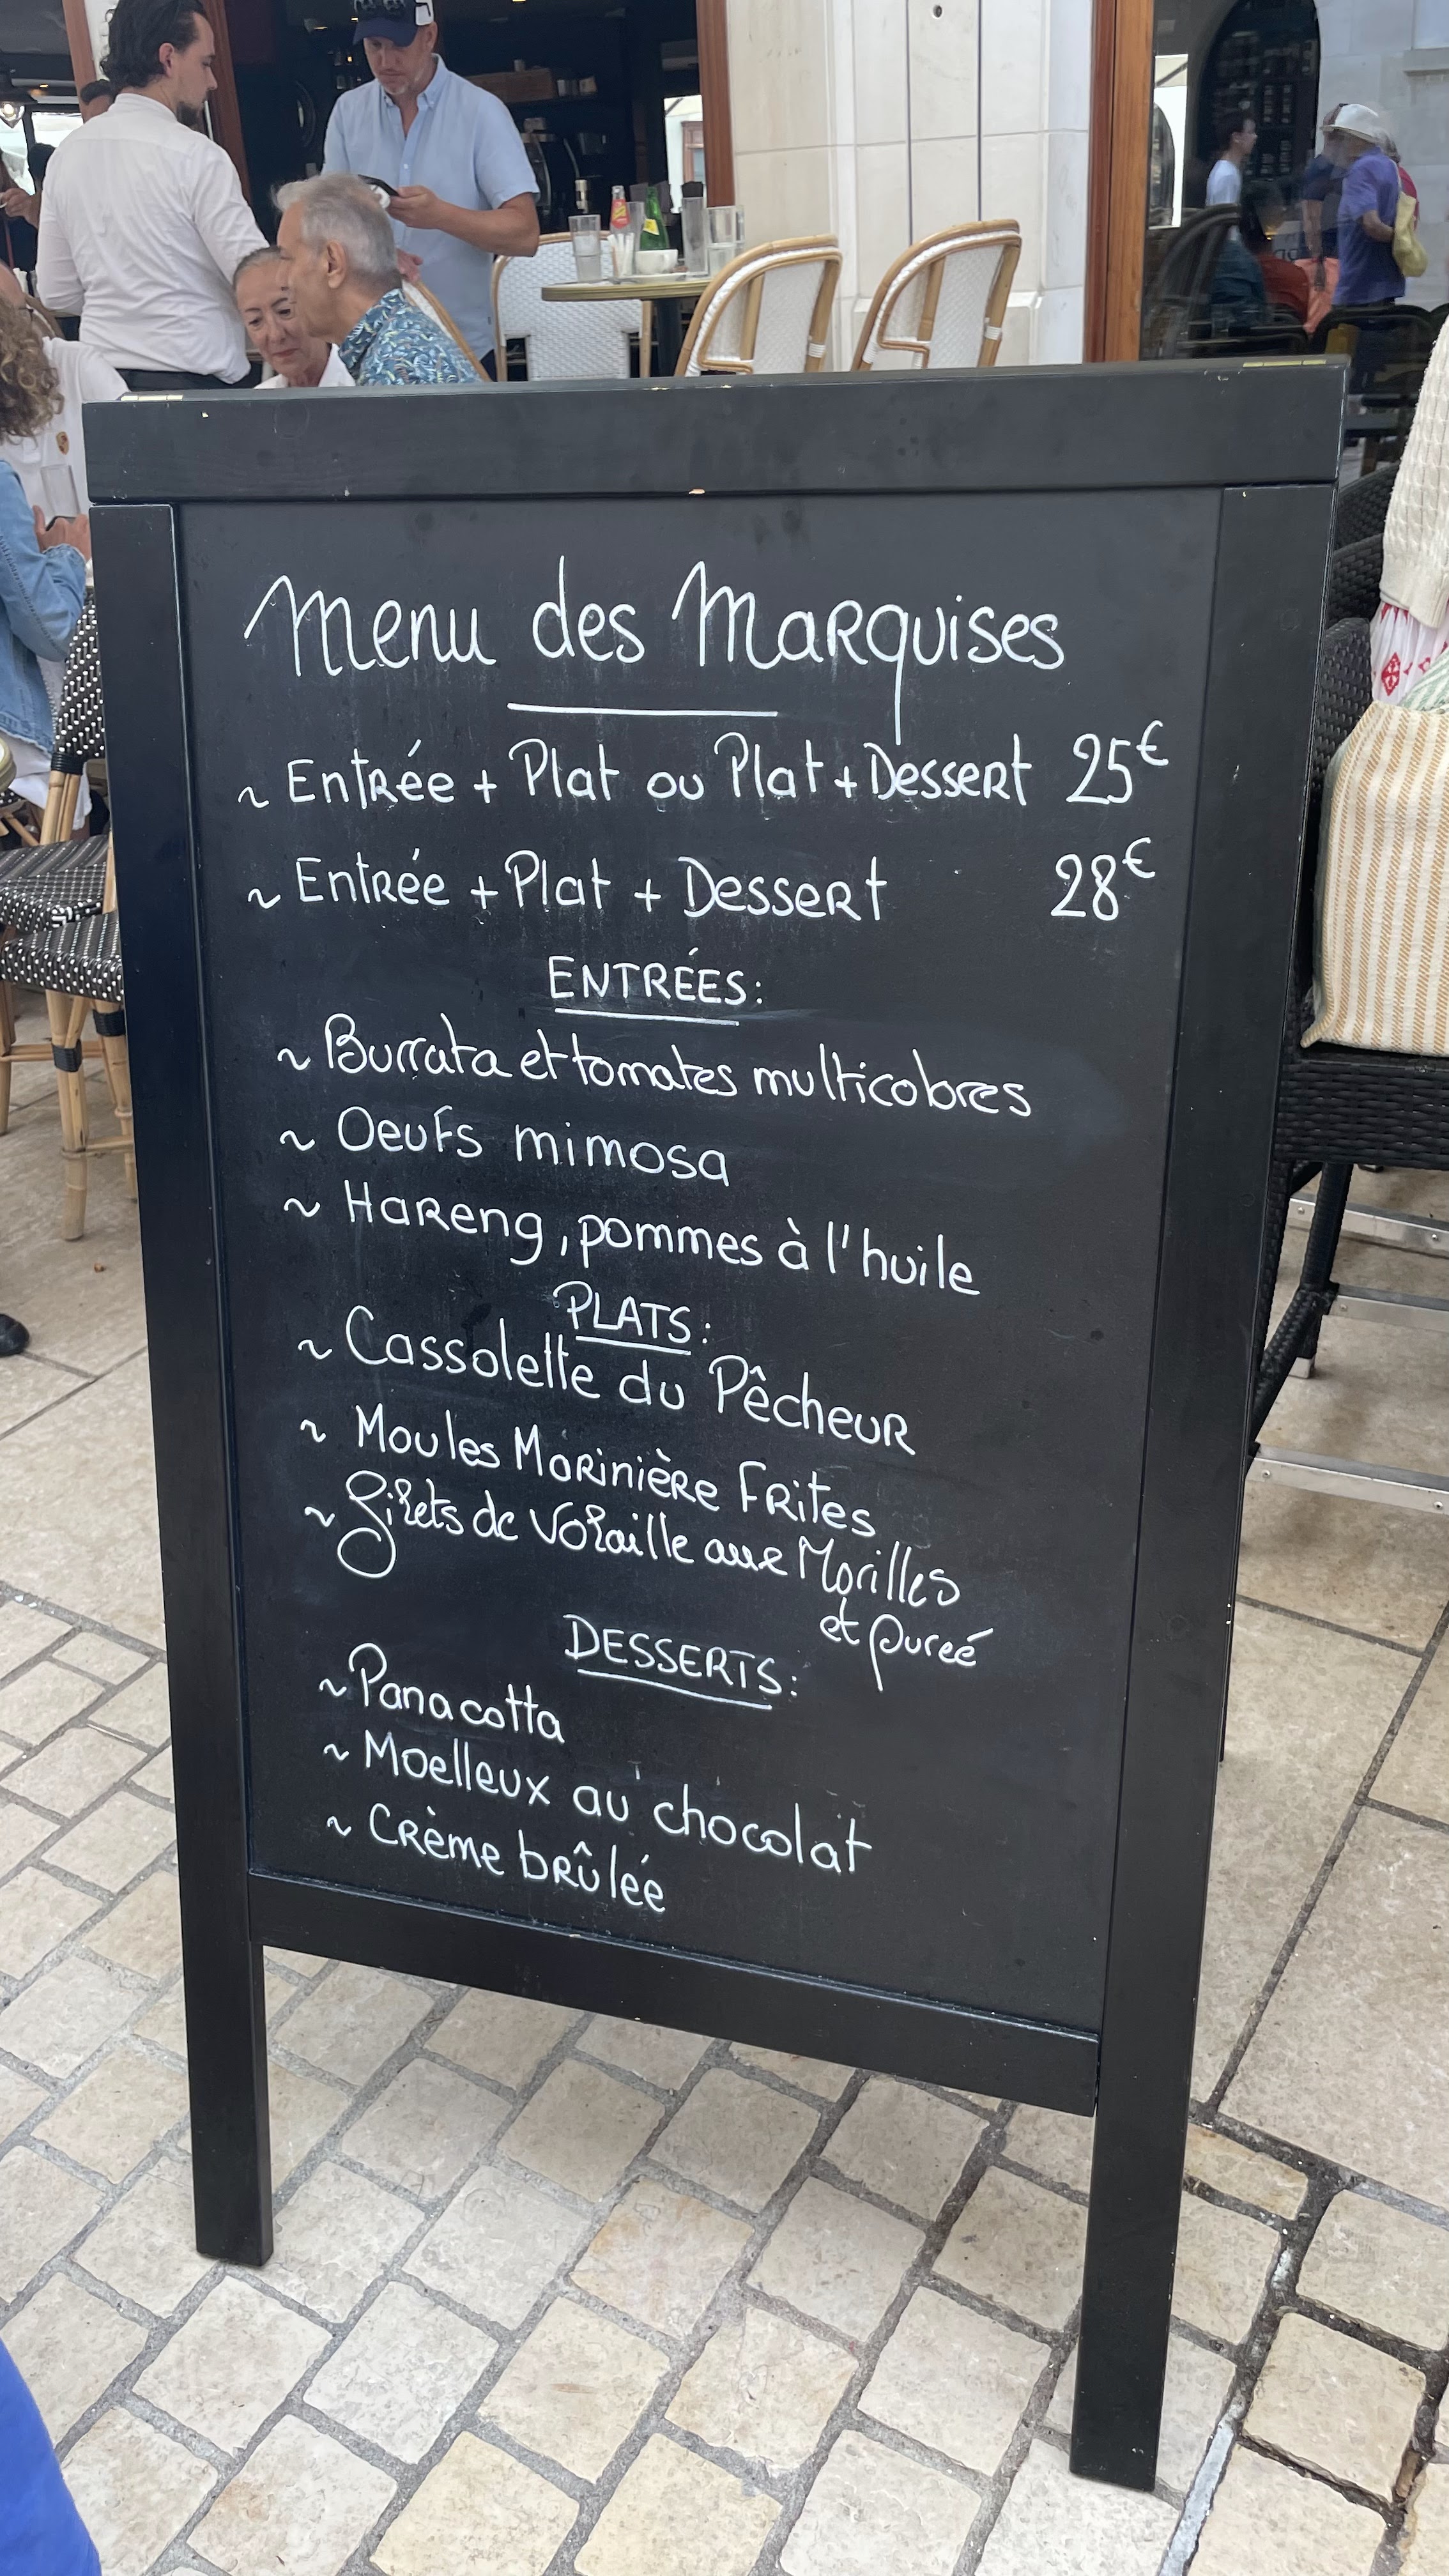 Menu des Marquises
~ Entrée + Plat ou Plat + Dessert 25€
~ Entrée + Plat + Dessert 28€
ENTRÉES:
~ Burrata et tomates multicolores
~ Oeufs mimosa
~ Hareng, pommes à l'huile
PLATS:
~ Cassolette du Pêcheur
~ Moules Marinière Frites
~ Filets de Volaille aux Morilles
et pureé
DESSERTS:
~ Panacotta
~ Moelleux au chocolat
~ Crème brûlée